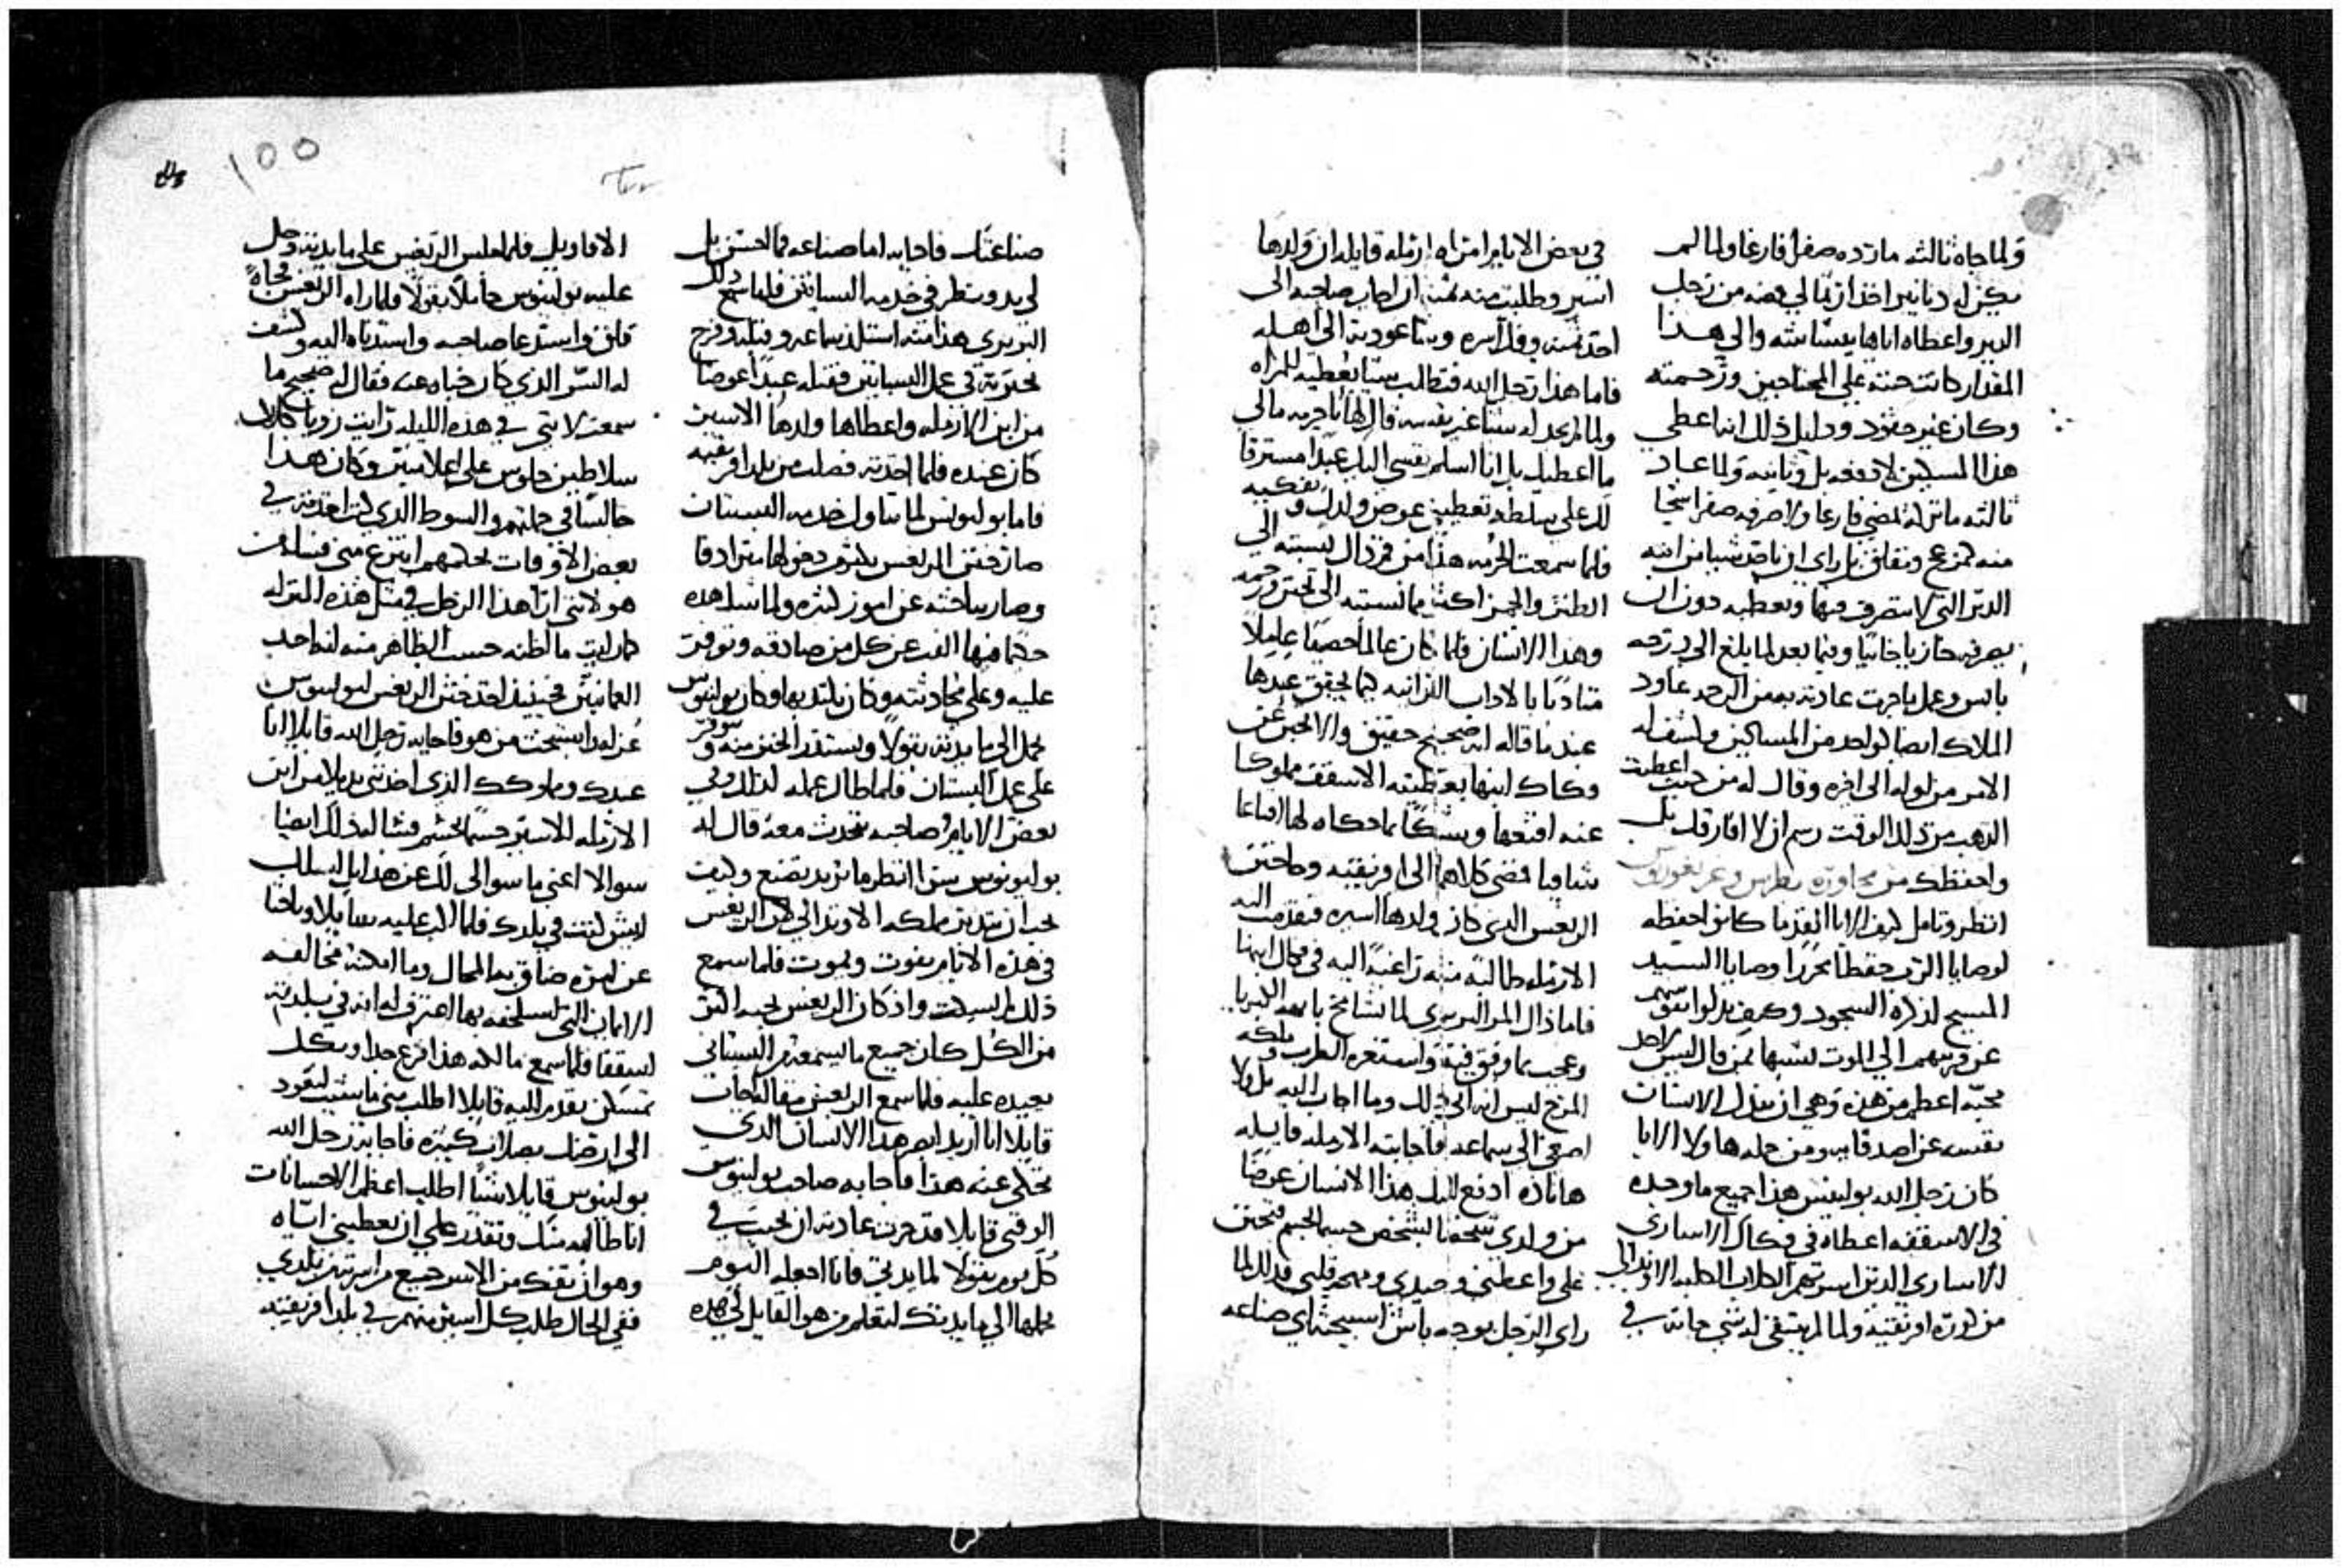 ولما جاه ثالثه ما رده صفرا فارغا ولما لم
يكن له دنانير اخذ ازتالي فضه من زجل
الدير واعطاه اياها ببشاشه والي هذا
المقدار كانت حنته علي المحتاجين ورحمته
وكان غير حقود ودليل ذلك انه اعطي
هذا المسكين لا دفعه بل وثانيه ولما عاد
ثالثه ما تركه يمضي فارغا ولا صرفه صفرا سخا
منه لم ينزعج ويقلق بل راي ان ياخذ شيا من انيه
الدير التي لا يتصرف فيها ويعطيه دون ان
يصرفه خازيا خايبا وفيما بعد لما بلغ الي درجه
بابس وعمل ما جرت عادته به من الرحمه عاود
الملاك ايضا كواحد من المساكين وكشف له
الامر من اوله الى اخره وقال له من حيث اعطيت
الذهب من ذلك الوقت رسم ان لا افارقك بل
واحفظك من مجاوره بطرس وغريغوريوس
انظر وتامل كيف الابا القدما كانوا حفظه
لوصايا الرب حفظا محررا ووصايا السيد
المسيح لذكره السجود وكيف بدلوا نفوسهم
عن قريبهم الي الموت تشبها بمن قال ليس لاحد
محبه اعظم من هذه وهي ان يبذل الانسان
نفسه عن اصدقايه ومن جمله هاولا الابا
كان رجل الله بولينس هذا جميع ما وجده
في الاسقفيه اعطاه في فكاك الاساري
الاساري الذين اسرتهم الكلاب الكلبه الاوندالي
من كوره افريقيه ولما لم يتبقى له شي جاته في
في بعض الايام امراه ارمله قايله ان ولدها
اسير وطلبت منه ثمنه ان اجاب صاحبه الى
اخذ ثمنه وفك اسره ويتا عوديه الي اهله
فاما هذا رجل الله فتطالب شيا يعطيه للمراه
ولما لم يجد له شيا غير نفسه قال لها يا حرمه مالي
ما اعطيك بل انا اسلم نفسي اليك عبدا مسترقا
لك علي سلطه تعطيني عوض ولدك وتفكيه
فلما سمعت الحرمه هذا من فم ذاك نسبته الي
الطنز والهمز اكثر مما نسبته الى تحنن ورحمه
وهذا الانسان فلما كان عالما حصيفا عاملا
متادبا بالاداب البرانيه فيما يحقق عندها
عندما قاله انه صحيح حقيق والا تخبر عن
وكاك ابنها بعطيته الاسقف مملوكا
عنه اقنعها وبشكها بما حكاه لها اقناعا
شافيا فمضى كلاهما الى افريقيه وماختن
الريغس الذي كان ولدها اسيره فتقدمت اليه
الارمله طالبه منه راغبة اليه في فكاك ابنها
فاما ذاك المرا البربري لما تشامخ بابهه الكبريا
وعجب بما وفق فيه واستغزه الطرب وملكه
المزح ليس انه الي ذلك وما اجاب اليه بل ولا
اصغى الى سماعه فاجابته الارمله قايله
هانذه ادفع اليك هذا الانسان عوضا
من ولدي شخصا بشخص جسما بجسم فتحنن
علي واعطني وحيدي ومهجه قلبي فذلك لما
راي الرجل بوجه باش استبحثه اي صناعه
صناعتك فاجابه اما صناعه فما احسن بل
لي يد وينظر في خدمه البساتين فلما سمع ذلك
البربري هذا منه استلذ سماعه وقبله وفرح
بخبرته في عمل البساتين فقبله عبدا عوضا
من ابن الارمله واعطاها ولدها الاسير
كان عنده فلما اخذته فصلت من بلد افريقيه
فاما بولينس لما تناول خدمه البستان
صار ختن الريغس يكثر دخولها مترادفا
وصار يباحثه عن امور كثيره ولما شاهده
حكما فيها الف عن كل من صادقه وتوفر
عليه وعلي محادثته وكان يلتذ بها وكان بولينوس
يحمل الى مايدته بقولا ويستمد الخبز منه وتوفر
على عمل البستان فلما طال عمله لذلك وفي
بعض الايام وصاحبه يتحدث معه قال له
بولينوس سرا انظر ما تريد تصنع وكيف
يجب ان يتدبر مملكه الاوندالي لان الريغس
في هذه الايام يفوت ويموت فلما سمع
ذلك لم يسكت واذ كان الريغس يحبه اكثر
من الكل كان جميع ما يسمعه من البستاني
يعيده عليه فلما سمع الريغس مقاله جاب
قايلا انا اريد ابصر هذا الانسان الذي
تحكي عنه هذا فاجابه صاحب بولينوس
الوقتي قايلا قد جرت عادته ان يجيب في
كل يوم بقولا لمايدتي فانا اجعله اليوم
يحملها الي مايدتك لتعلم من هو القايل لي هذه
الاقاويل فلما جلس الريغس على مايدته دخل
عليه بولينوس حاملا بقولا فلما راه الريغس فجاه
قلق واستدعا صاحبه واستدناه اليه وكشف
له السر الذي كان خباه عنه فقال له صحيح ما
سمعت لانني في هذه الليله رايت رويا كان
سلاطين جلوس على اعلا منبر وكان هذا
جالسا في جملتهم والسوط الذي كنت اخذته في
بعض الاوقات بحكمهم انتزع مني فسالت
هولا نبي ان هذا الرجل في مثل هذه المنزله
كما رايت ما اظنه حسب الظاهر منه انه احد
العامانيين فحينيذ اخذ ختن الريغس لبولينوس
عزله واستبحث من هو فاجابه رجل الله قايلا انا
عبدك ومملوكك الذي اخذتني بديلا من ابن
الارمله الاسير جسما بجسم فساله ذلك ايضا
سوالا اعني ما سوالي لك عن هذا بل اسالك
ايش كنت في بلدك فلما الب عليه سايلا وباحثا
عن امره ضاق به المحال وما امكنه مخالفه
الايمان التي استحلفه بها اعترف له انه في بلدته
اسقفا فلما سمع مالكه هذا فزع جدا وبكل
تمسكن تقدم اليه قايلا اطلب مني ما شيت لتعود
الى ارضك بصلات كثيره فاجابه رجل الله
بولينوس قايلا شيا اطلب اعظم الاحسانات
انا طالبه منك وتقدر علي ان تعطيني اياه
وهو ان تفك من الاسر جميع من اسرته من بلدي
ففي الحال طلب كل اسير منهم في بلد افريقيه